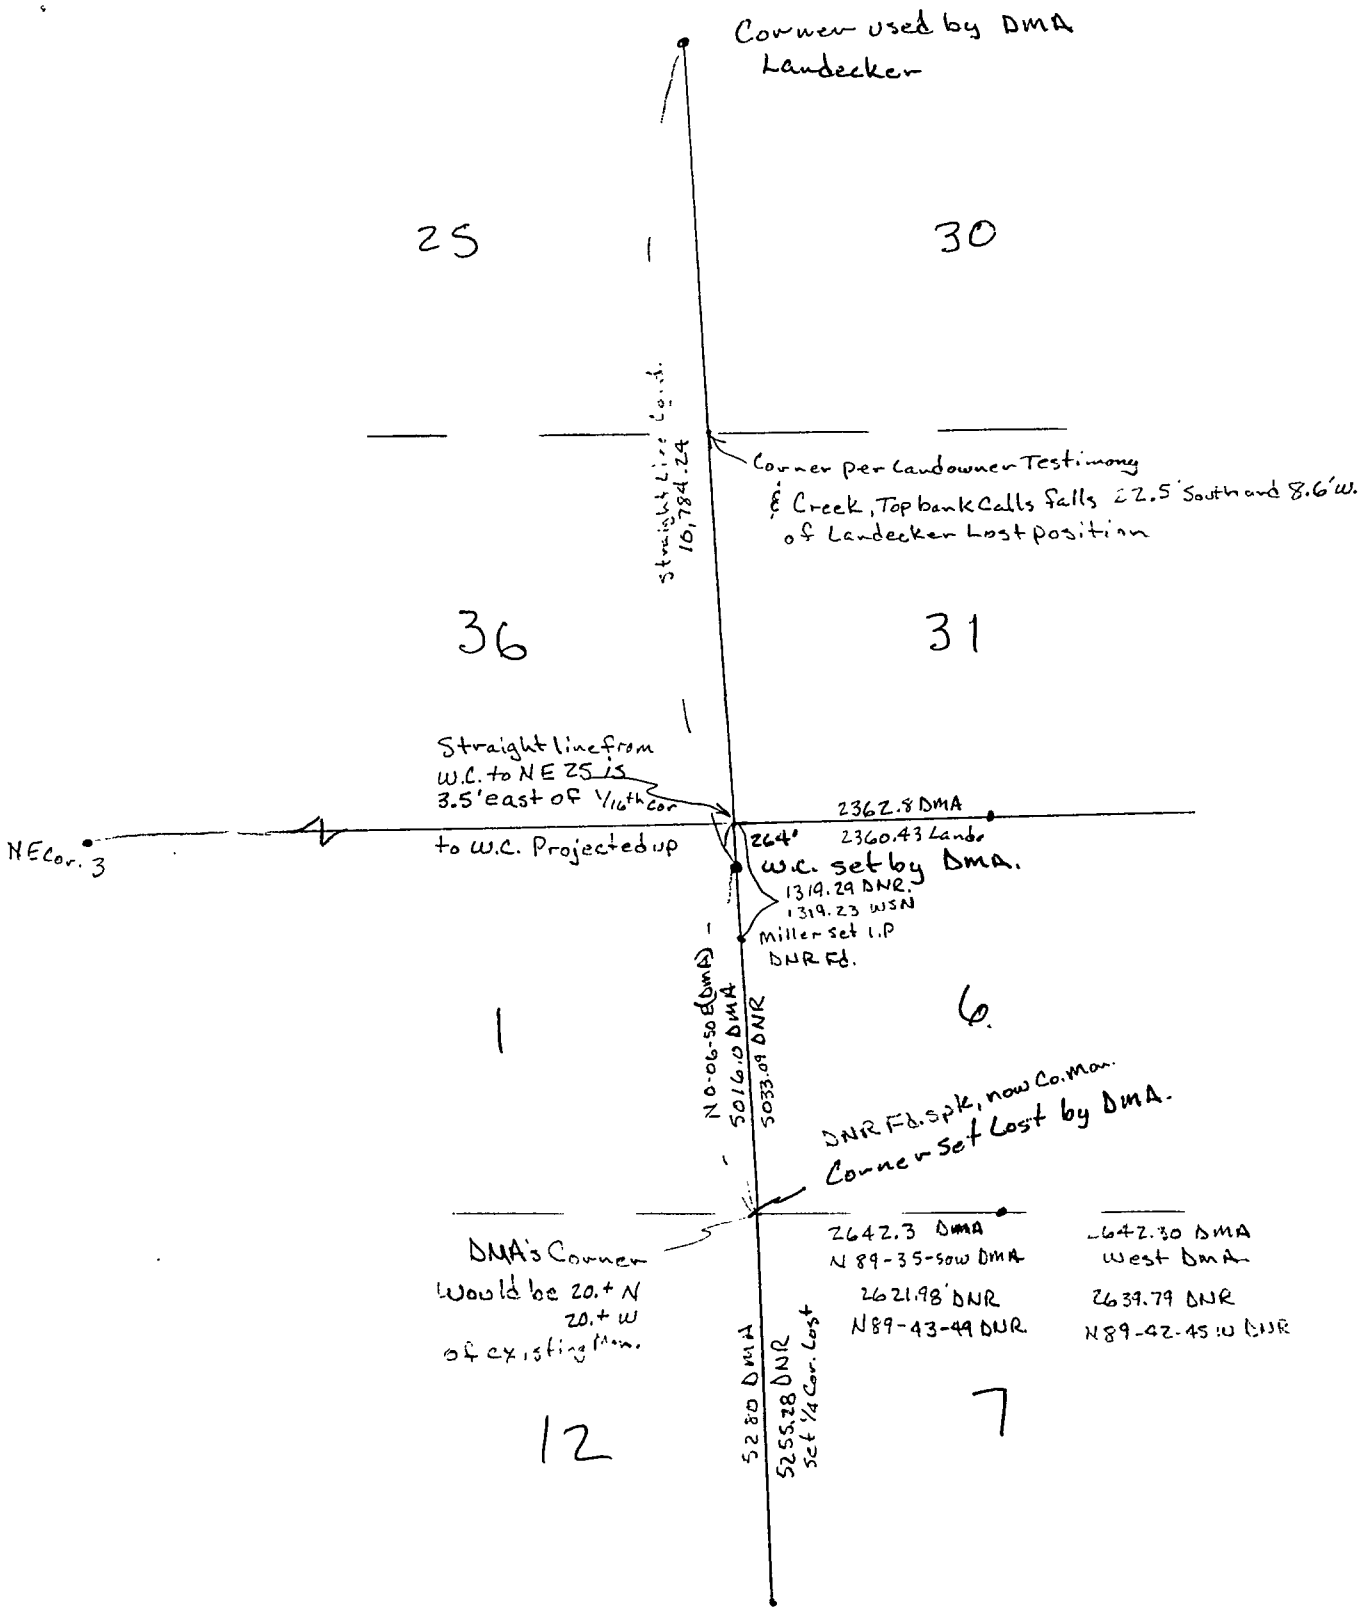 Corner used by DMA
Landecker
25
30
Straight Line Co.d.
16,784.24
Corner per Landowner Testimony
& Creek, Top bank Calls falls 22.5' South and 8.6' W.
of Landecker Lost position
36
31
Straight line from
W.C. to NE 25 is
3.5' east of 1/16th cor
to W.C. Projected up
NE Cor. 3
2362.8 DMA
2360.43 Lande
264'
W.C. set by DMA.
1319.29 DNR.
1319.23 WSN
Miller set I.P
DNR Fd.
N 0-06-50 E (DMA)
5016.0 DMA
5033.09 DNR
1
6.
DNR Fd. spk, now Co. Mon.
Corner set Lost by DMA.
DMA's Corner
Would be 20.+ N
20.+ W
of existing Mon.
2642.3 DMA
N 89-35-50W DMA
2621.98' DNR
N89-43-49 DNR.
2642.30 DMA
West DMA
2639.79 DNR
N89-42-45 W DNR
5280 DMA
5255.28 DNR
set 1/4 Cor. Lost
12
7